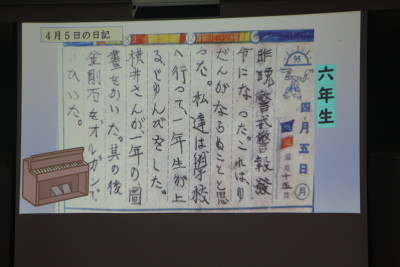 4月5日の日記
六年生
四月五日(月)
昨晩警戒警報發
令になった。これはゆ
だんがならぬことと思
った。私達は學校
へ行って一年生が上
るじゅんびをした。
横井さんが、一年の圖
畫をかいた。其の後
金剛石を、オルガンで
ひいた。